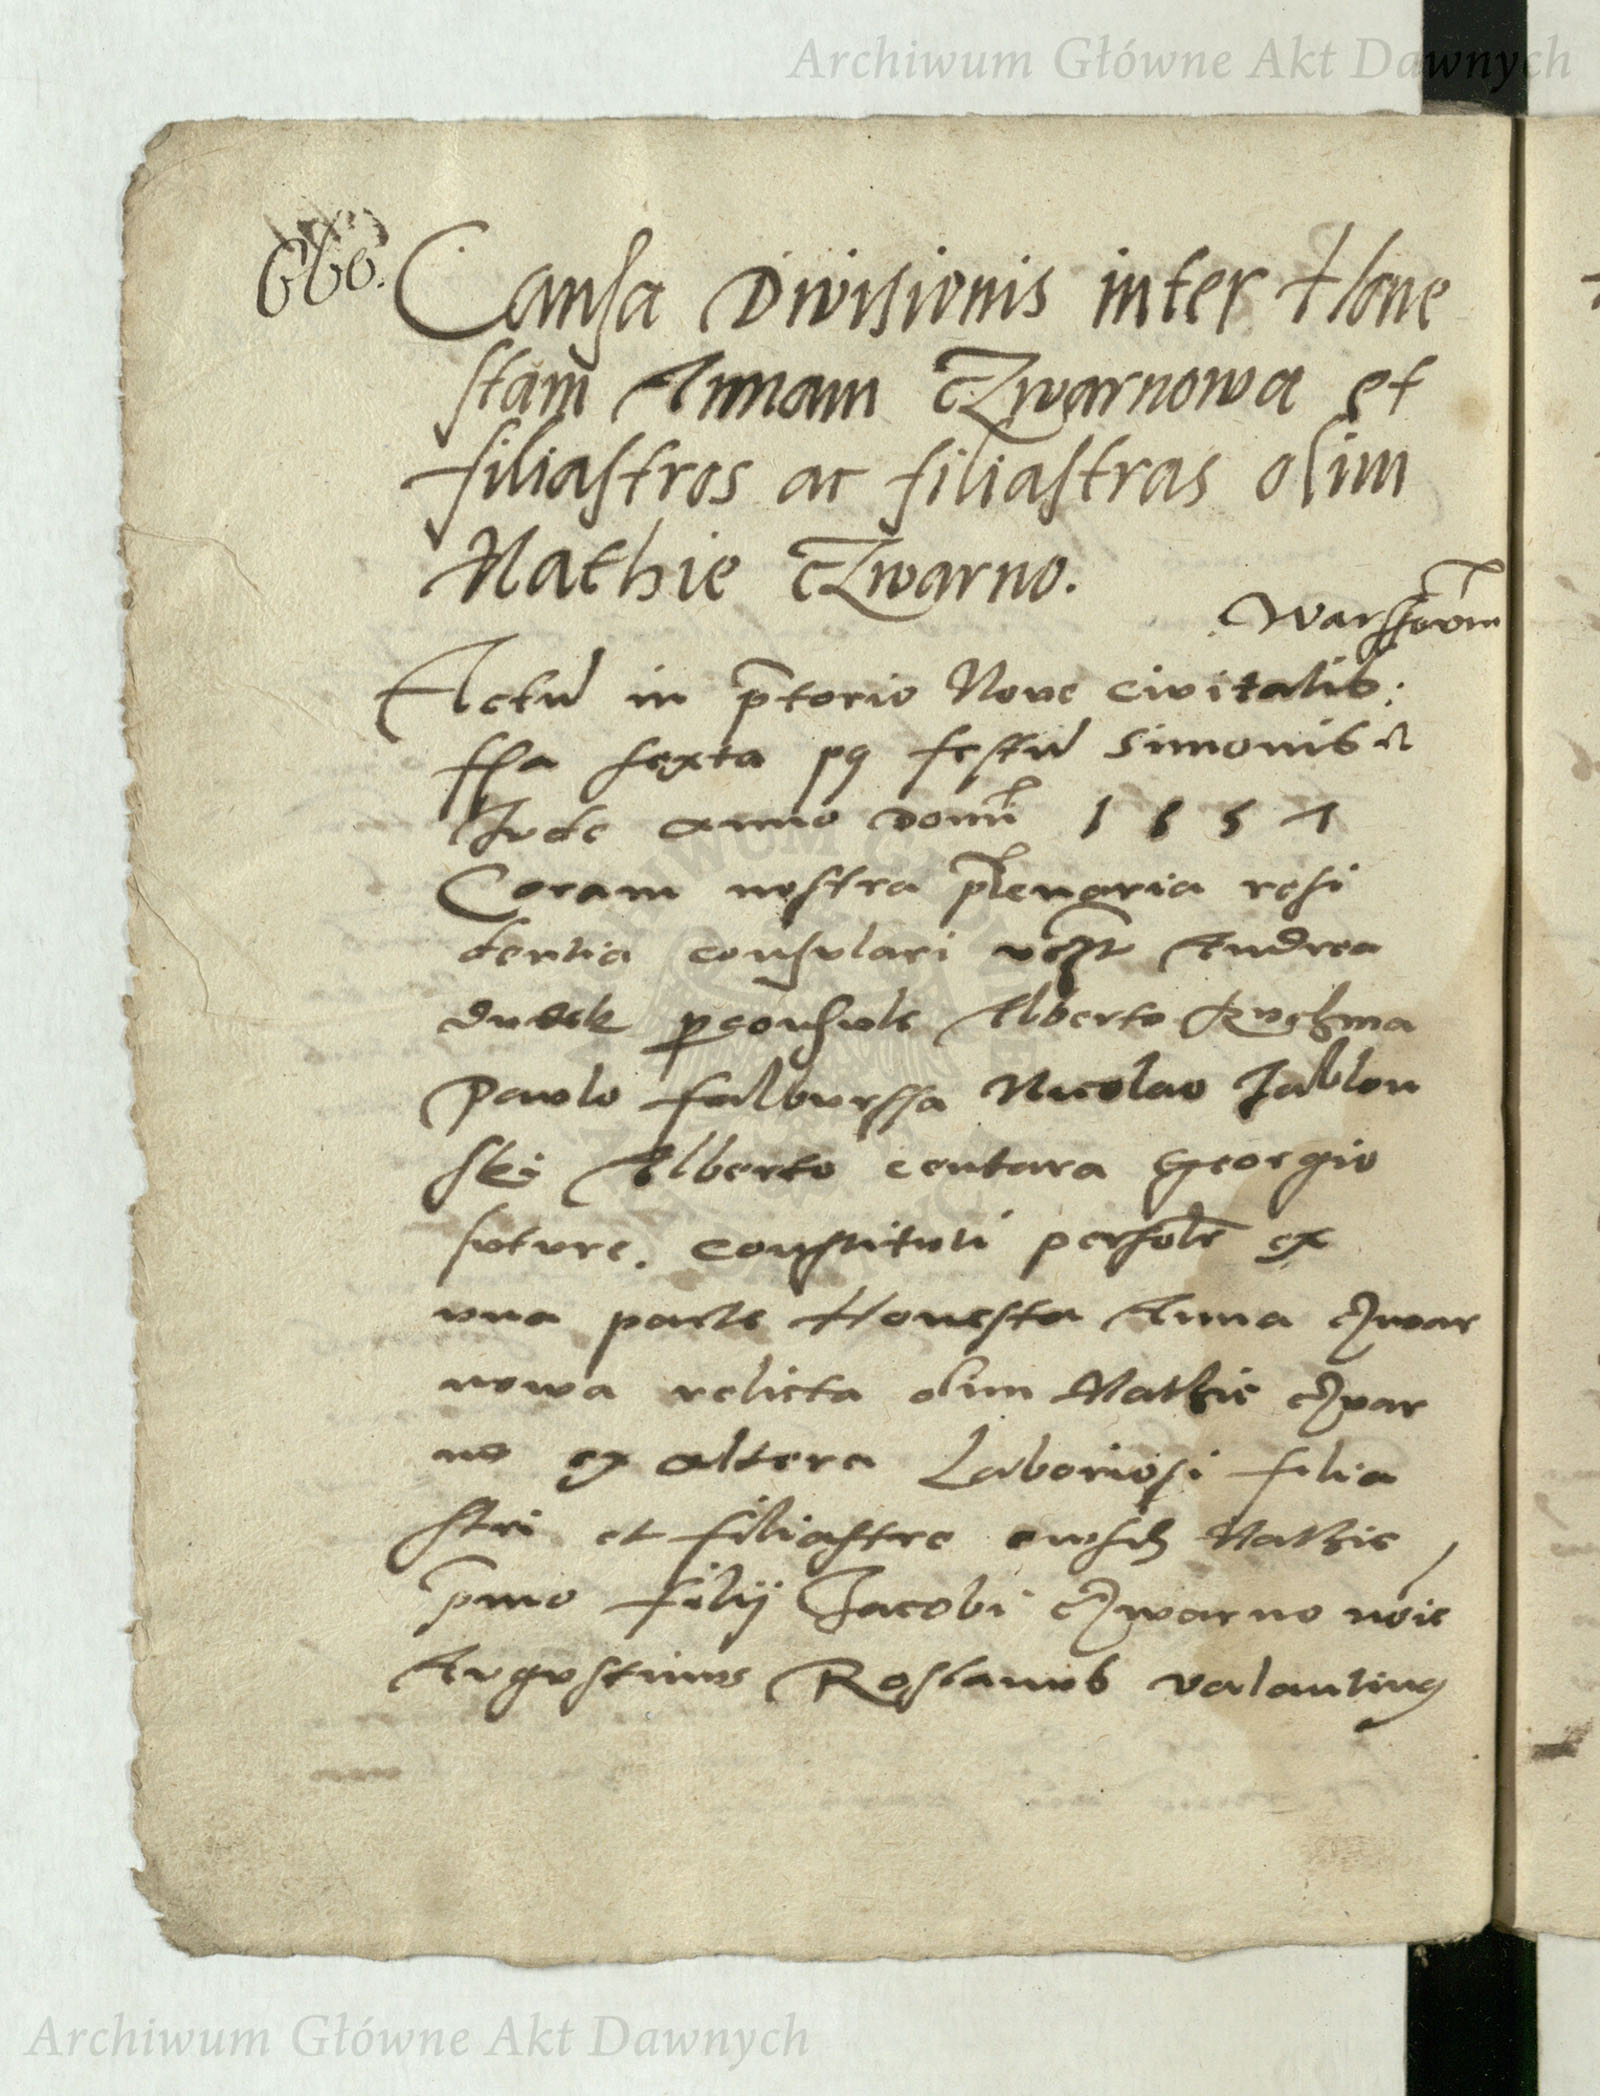 Archiwum Główne Akt Dawnych
660.
Causa Divisionis inter Hone
stam Annam Czwarnowa et
filiastros ac filiastras olim
Mathie Czwarno.
Warssovien
Actu in ptorio Nove civitatis
ffa sexta pq festu Simonis
Jude anno domi 1 5 5 7
Coram nostra plenaria resi
dentia consulari Andrea
dudek pconsule Alberto Kuchma
Paulo falburssa Nicolao Jablon
ski Alberto centara Georgio
suture. constituti personlr ex
una parte Honesta Anna Czwar
nowa relicta olim Mathie Czwar
no ex altera Laboriosi filia
stri et filiastre eiusd Mathie
pmo filij Jacobi Czwarno noie
Augustinus Roslanus valentinq
Archiwum Główne Akt Dawnych